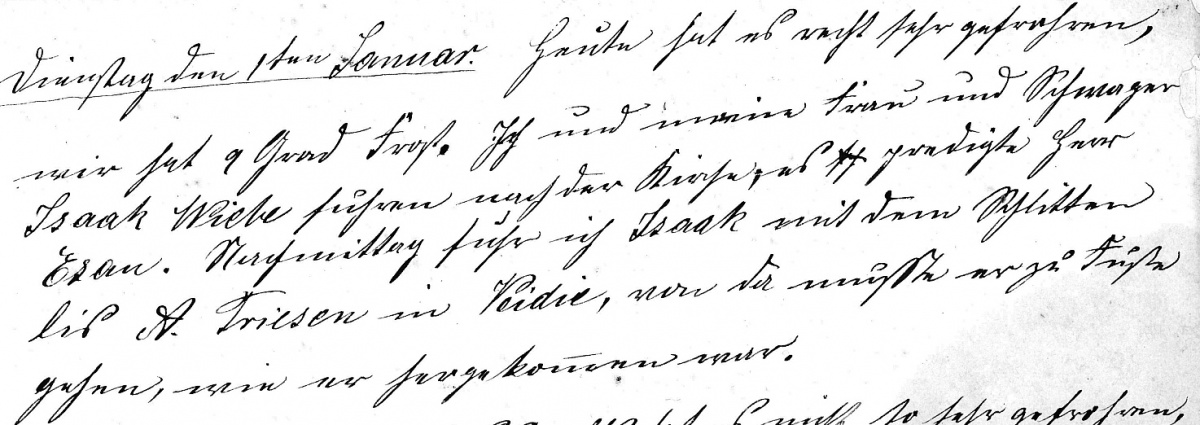 Dienstag den 1ten Januar. Heute hat es recht sehr gefrohren,
wir hat 9 Grad Frost. Ich und meine Frau und Schwager
Isaak Wiebe fuhren nach der Kirche, es predigte Herr
Esau. Nachmittag fuhr ich Isaak mit dem Schlitten
bis A. Friesen in, von da musste er zu Fusse
gehen, wie er hergekommen war.
es nicht so sehr gefrohren,